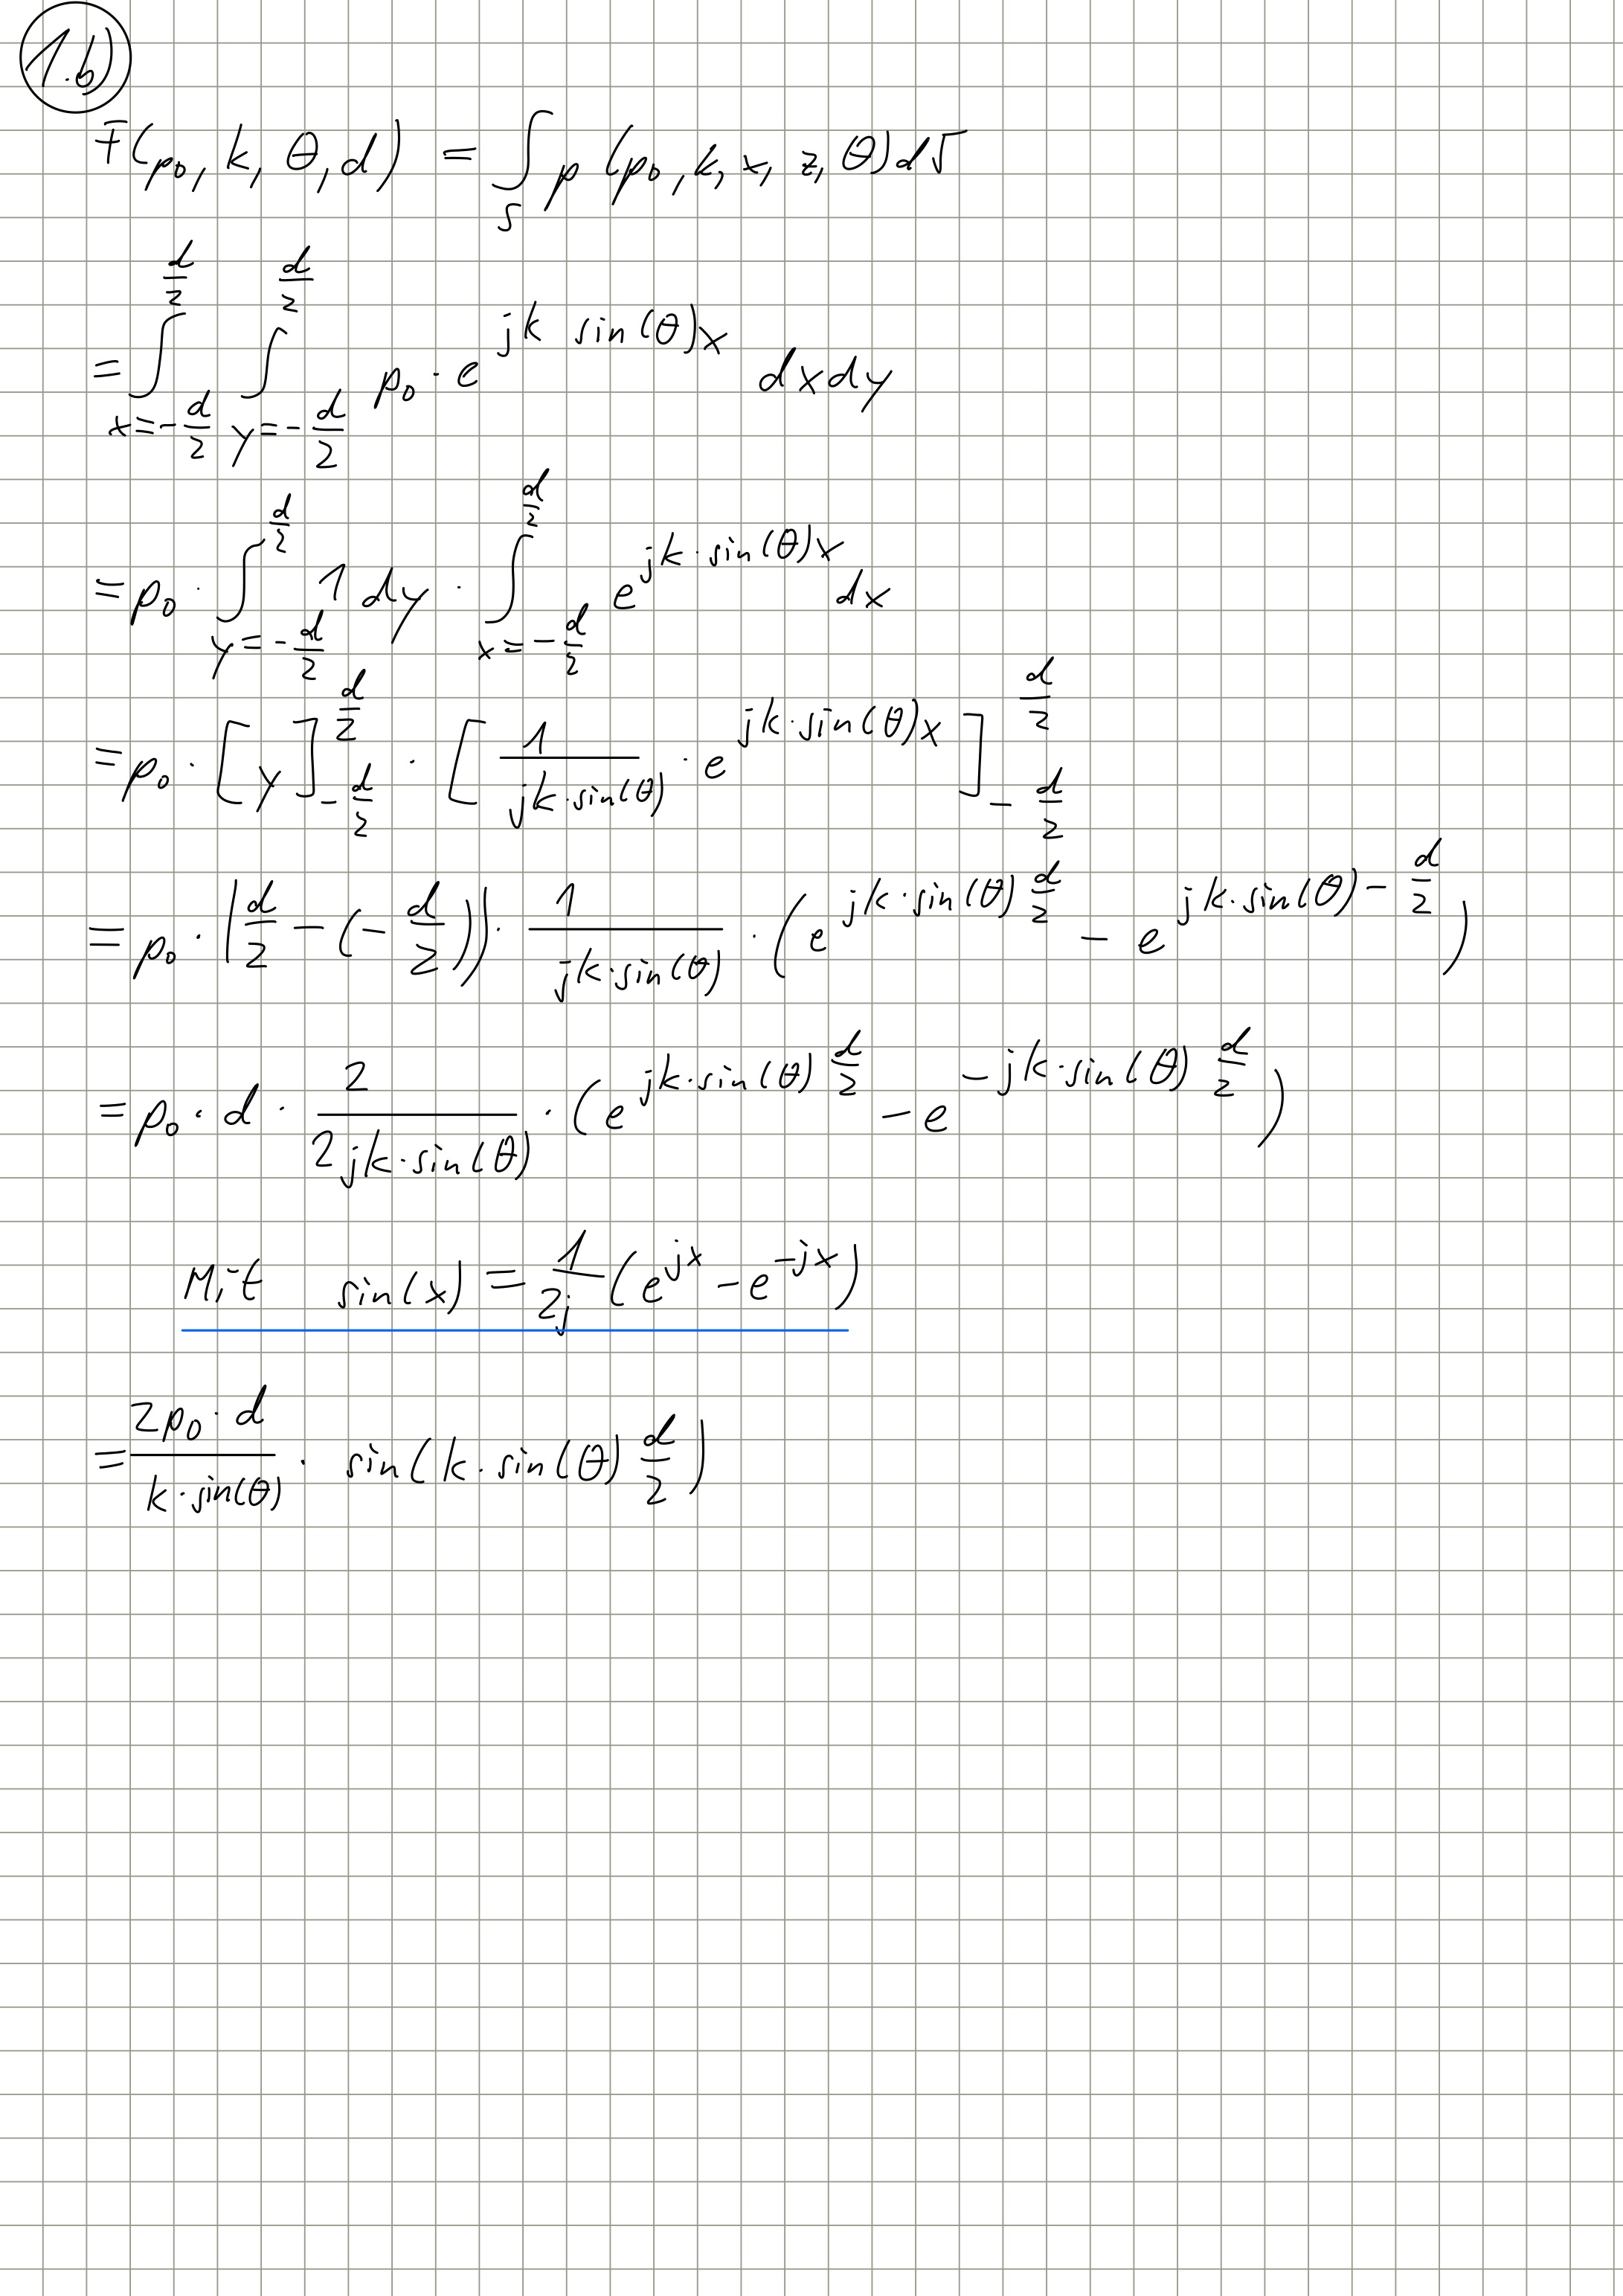 1.b)
F(p₀, k, θ, d) = ∫_S p (p₀, k, x, z, θ) dS
= ∫_{x=-d/2}^{d/2} ∫_{y=-d/2}^{d/2} p₀ · e^{jk sin(θ)x} dxdy
= p₀ · ∫_{y=-d/2}^{d/2} 1 dy · ∫_{x=-d/2}^{d/2} e^{jk·sin(θ)x} dx
= p₀ · [y]_{-d/2}^{d/2} · [1/(jk·sin(θ)) · e^{jk·sin(θ)x}]_{-d/2}^{d/2}
= p₀ · (d/2 - (-d/2)) · 1/(jk·sin(θ)) · (e^{jk·sin(θ) d/2} - e^{jk·sin(θ) - d/2})
= p₀ · d · 2/(2jk·sin(θ)) · (e^{jk·sin(θ) d/2} - e^{-jk·sin(θ) d/2})
Mit sin(x) = 1/(2j) (e^{jx} - e^{-jx})
= (2p₀·d)/(k·sin(θ)) · sin(k·sin(θ) d/2)